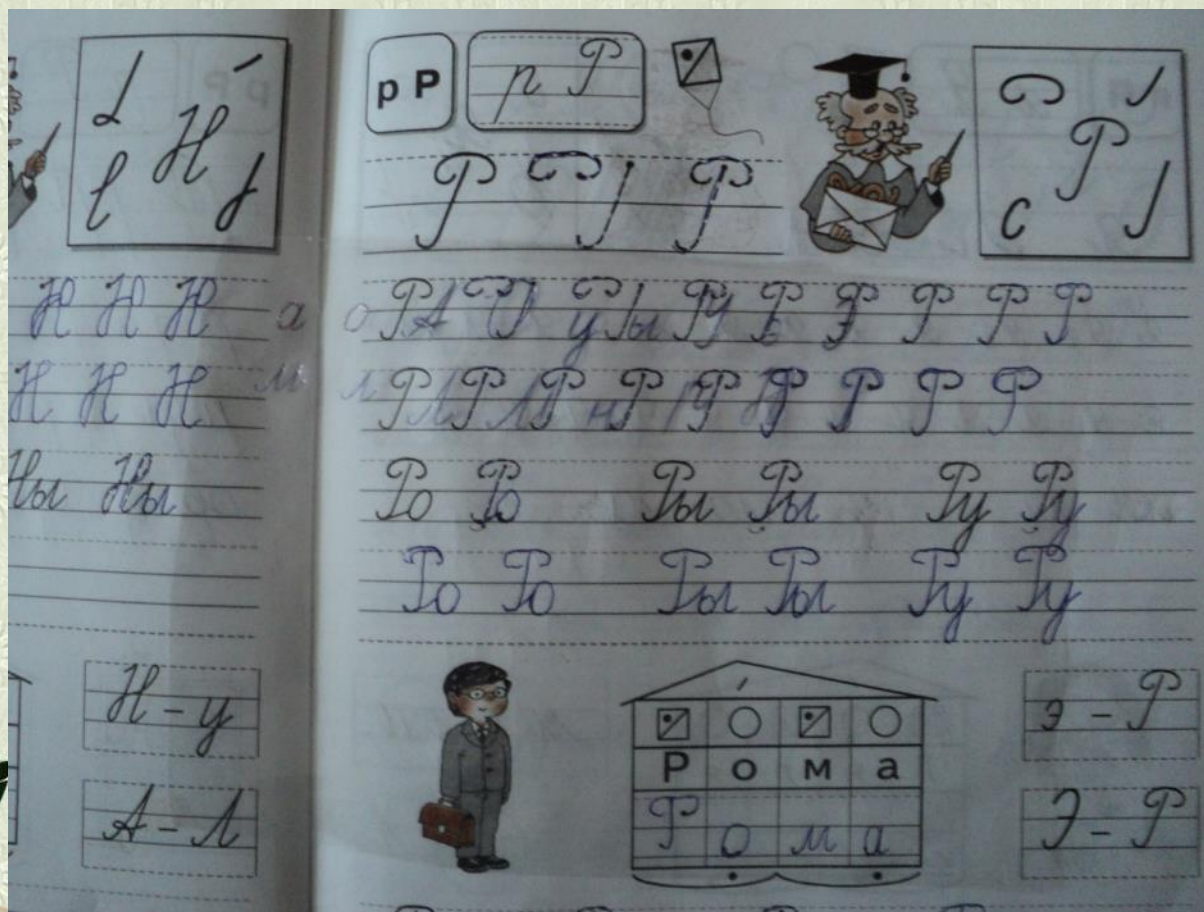 Н
Н Н Н а
Н Н Н м
Ны Ны
Н - у
А - Л
р Р р Р
Р Р
Р
с
о Р А у ы Р У Р Ь Э Р Р Р
м Р Л Р Л Р н Р Р Р Р Р Р
Ро Ро Ры Ры Ру Ру
Ро Ро Ры Ры Ру Ру
Р о м а
Р о м а
э - Р
Э - Р